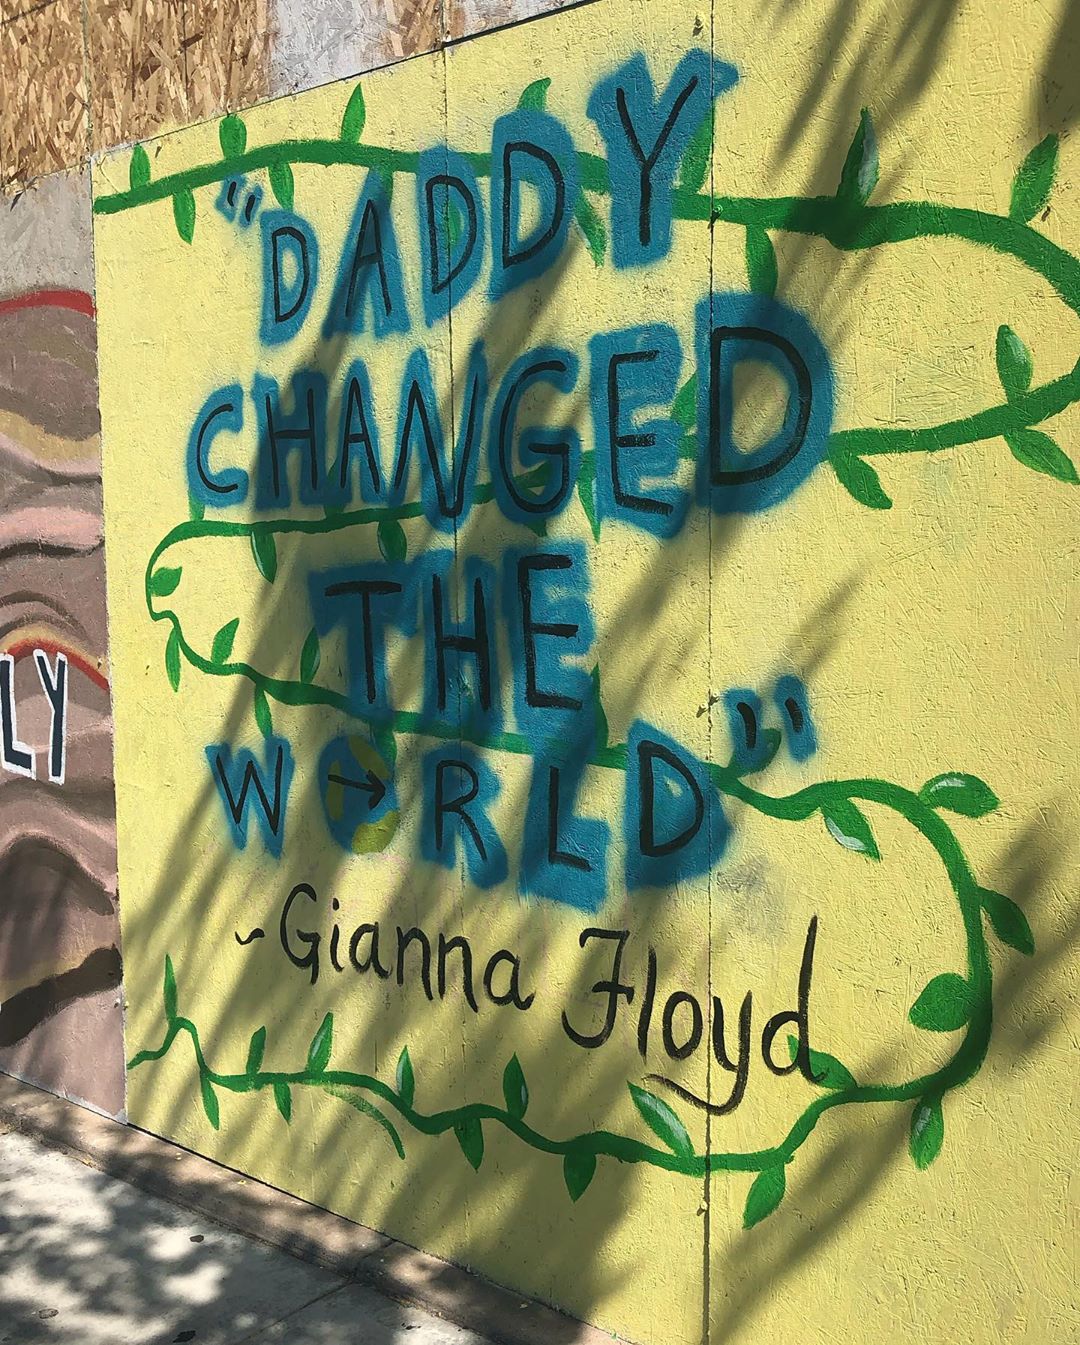 "DADDY
CHANGED
THE
WORLD"
~Gianna Floyd
LY